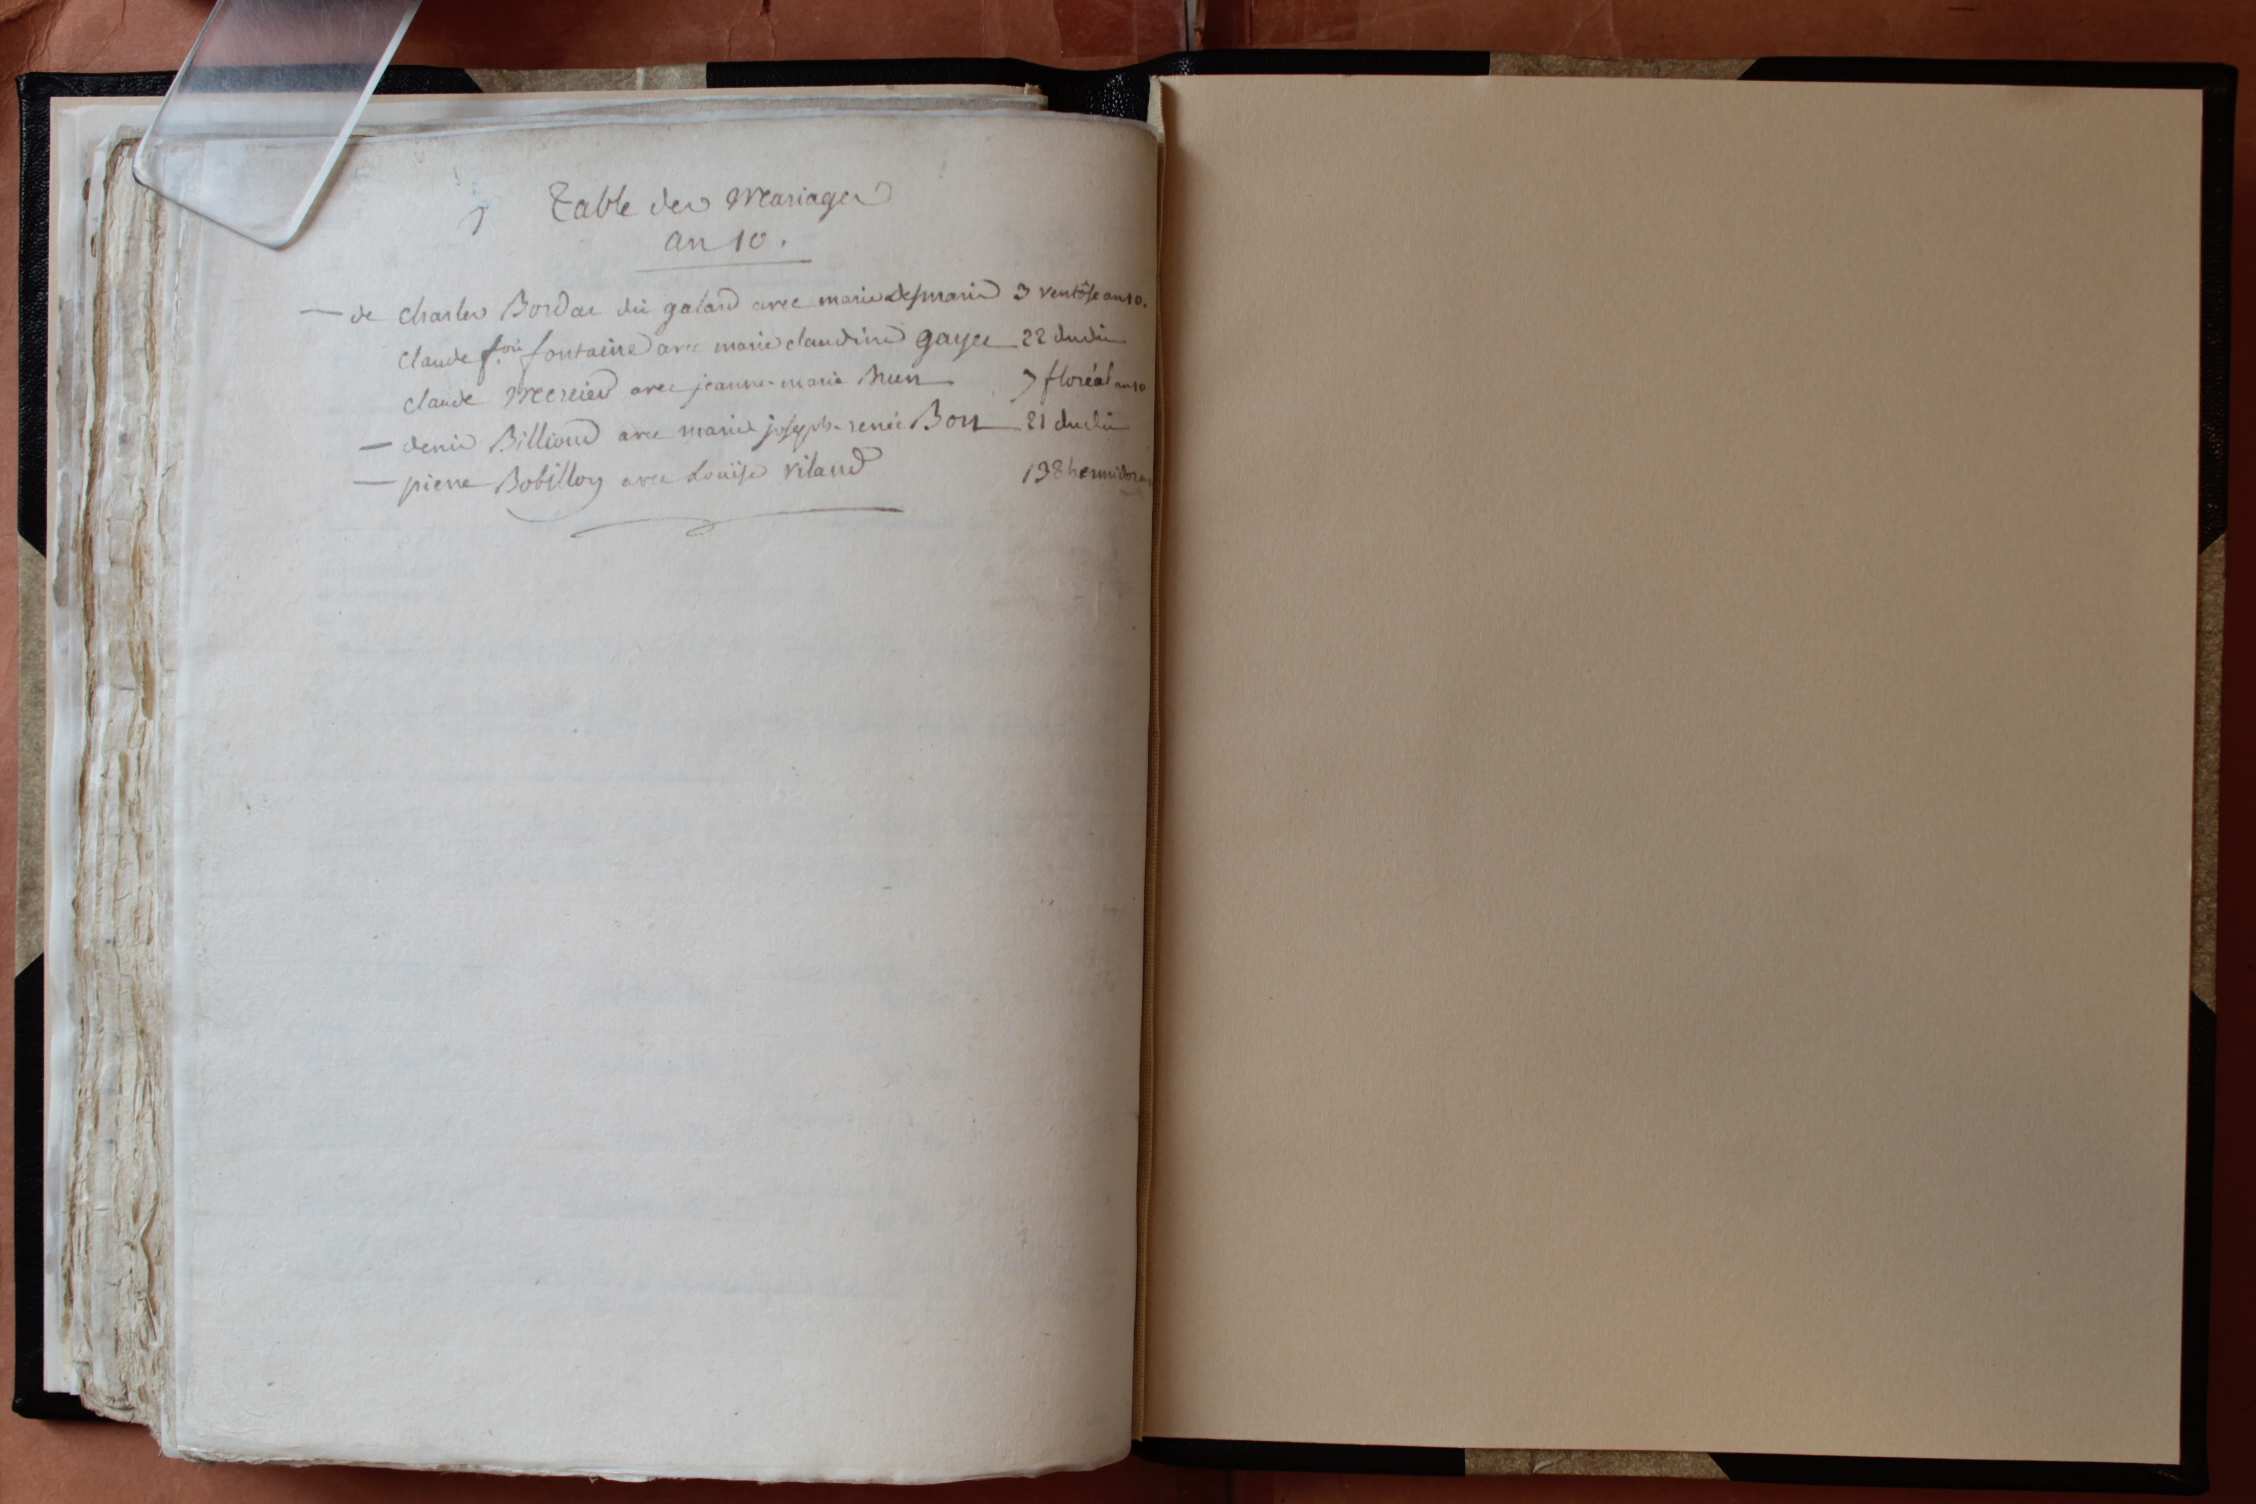 Table des Mariages
an 10.
— de charles Bordas dit galand avec marie desmaris 3 ventôse an 10.
claude f.ois fontaine avec marie claudine gayee 22 dudit
claude Mercier avec jeanne-marie 7 floréal an 10
— denis Billioud avec marie joseph-renée Bon 21 dudit
— pierre Bobillon avec Louïse vilaud 13 thermidor